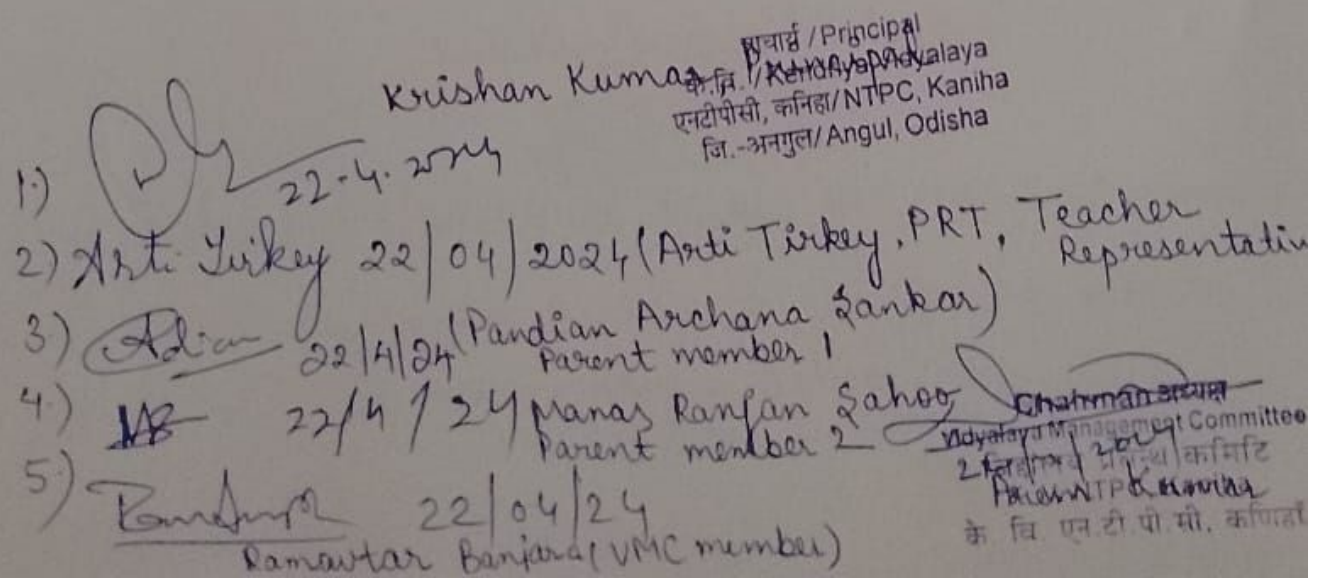 Krishan Kumar
प्राचार्य / Principal
के.वि. / Kendriya Vidyalaya
एनटीपीसी, कनिहा/NTPC, Kaniha
जि.-अनगुल/ Angul, Odisha
1.) 22-4-2024
2) Arti Tirkey 22/04/2024 (Arti Tirkey, PRT, Teacher
Representativ
3) 22/4/24 (Pandian Archana Sankar)
Parent member 1
4.) 22/4/24 Manas Ranjan Sahoo
Parent member 2
Chairman अध्यक्ष
Vidyalaya Management Committee
विद्यालय प्रबन्ध कमिटि
के वि एन.टी.पी.सी. कणिहाँ
5.) 22/04/24
Ramavtar Banjara (VMC member)